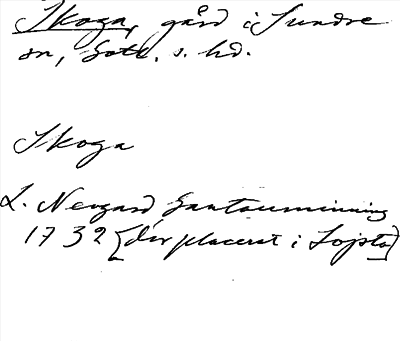 Skoga, gård i Sundre
sn, Gotl. s. hd.
Skoga
L. Nevgard Gantauminning
1732 [där placerat i Lojsta]